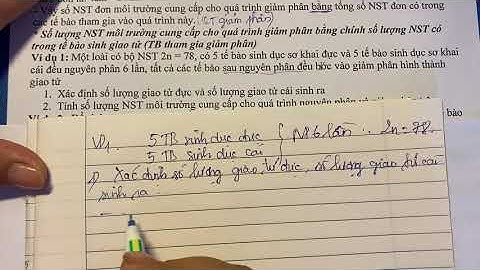 - Vậy số NST đơn môi trường cung cấp cho quá trình giảm phân bằng tổng số NST đơn có trong
các tế bào tham gia vào quá trình này. (giảm phân)
* Số lượng NST môi trường cung cấp cho quá trình giảm phân bằng chính số lượng NST có
trong tế bào sinh giao tử (TB tham gia giảm phân)
Ví dụ 1: Một loài có bộ NST 2n = 78, có 5 tế bào sinh dục sơ khai đực và 5 tế bào sinh dục sơ khai
cái đều nguyên phân 6 lần, tất cả các tế bào sau nguyên phân đều bước vào giảm phân hình thành
giao tử
1. Xác định số lượng giao tử đực và số lượng giao tử cái sinh ra
2. Tính số lượng NST môi trường cung cấp cho quá trình nguyên phân
bào
VD1. 5 TB sinh dục đực
5 TB sinh dục cái
NP 6 lần . 2n = 78.
1) Xác định số lượng giao tử đực, số lượng giao tử cái
sinh ra